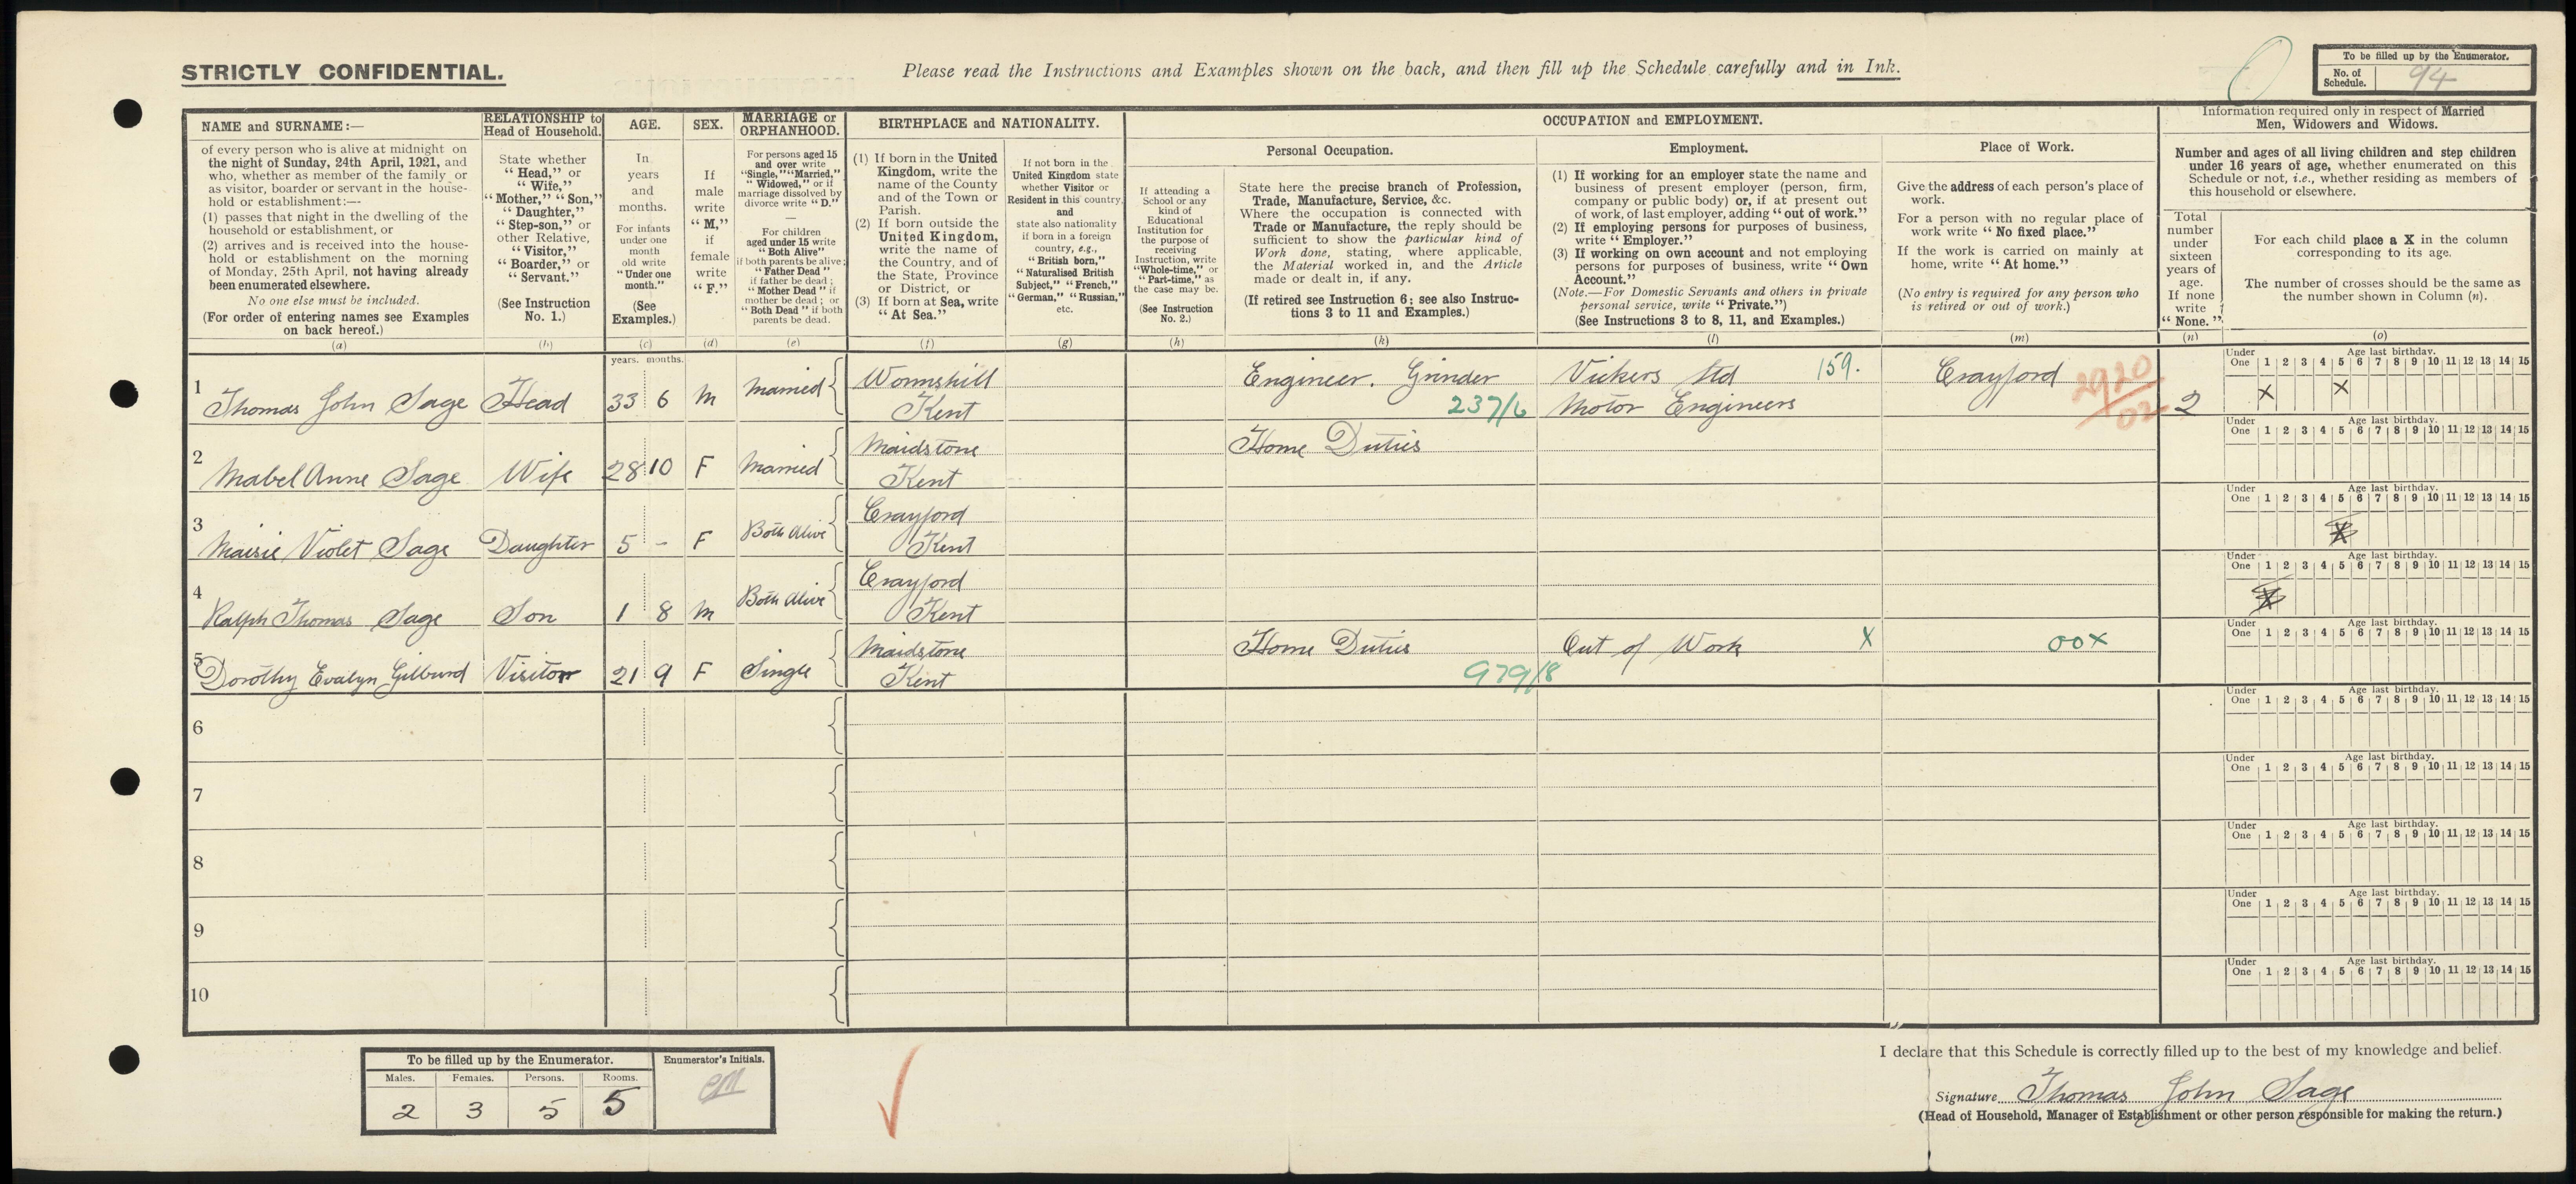 STRICTLY CONFIDENTIAL.
Please read the Instructions and Examples shown on the back, and then fill up the Schedule carefully and in Ink.
To be filled up by the Enumerator.
No. of Schedule. 94
NAME and SURNAME:—
of every person who is alive at midnight on
the night of Sunday, 24th April, 1921, and
who, whether as member of the family or
as visitor, boarder or servant in the house-
hold or establishment:—
(1) passes that night in the dwelling of the
household or establishment, or
(2) arrives and is received into the house-
hold or establishment on the morning
of Monday, 25th April, not having already
been enumerated elsewhere.
No one else must be included.
(For order of entering names see Examples
on back hereof.)
(a)
RELATIONSHIP to
Head of Household.
State whether
"Head," or
"Wife,"
"Mother," "Son,"
"Daughter,"
"Step-son," or
other Relative,
"Visitor,"
"Boarder," or
"Servant."
(See Instruction
No. 1.)
(b)
AGE.
In
years
and
months.
For infants
under one
month
old write
"Under one
month."
(See
Examples.)
(c)
SEX.
If
male
write
"M,"
if
female
write
"F."
(d)
MARRIAGE or
ORPHANHOOD.
For persons aged 15
and over write
"Single," "Married,"
"Widowed," or if
marriage dissolved by
divorce write "D."
—
For children
aged under 15 write
"Both Alive"
if both parents be alive;
"Father Dead"
if father be dead;
"Mother Dead" if
mother be dead; or
"Both Dead" if both
parents be dead.
(e)
BIRTHPLACE and NATIONALITY.
(1) If born in the United
Kingdom, write the
name of the County
and of the Town or
Parish.
(2) If born outside the
United Kingdom,
write the name of
the Country, and of
the State, Province
or District, or
(3) If born at Sea, write
"At Sea."
(f)
If not born in the
United Kingdom state
whether Visitor or
Resident in this country,
and
state also nationality
if born in a foreign
country, e.g.,
"British born,"
"Naturalised British
Subject," "French,"
"German," "Russian,"
etc.
(g)
OCCUPATION and EMPLOYMENT.
Personal Occupation.
If attending a
School or any
kind of
Educational
Institution for
the purpose of
receiving
Instruction, write
"Whole-time," or
"Part-time," as
the case may be.
(See Instruction
No. 2.)
(h)
State here the precise branch of Profession,
Trade, Manufacture, Service, &c.
Where the occupation is connected with
Trade or Manufacture, the reply should be
sufficient to show the particular kind of
Work done, stating, where applicable,
the Material worked in, and the Article
made or dealt in, if any.
(If retired see Instruction 6; see also Instruc-
tions 3 to 11 and Examples.)
(k)
Employment.
(1) If working for an employer state the name and
business of present employer (person, firm,
company or public body) or, if at present out
of work, of last employer, adding "out of work."
(2) If employing persons for purposes of business,
write "Employer."
(3) If working on own account and not employing
persons for purposes of business, write "Own
Account."
(Note.—For Domestic Servants and others in private
personal service, write "Private.")
(See Instructions 3 to 8, 11, and Examples.)
(l)
Place of Work.
Give the address of each person's place of
work.
For a person with no regular place of
work write "No fixed place."
If the work is carried on mainly at
home, write "At home."
(No entry is required for any person who
is retired or out of work.)
(m)
Information required only in respect of Married
Men, Widowers and Widows.
Number and ages of all living children and step children
under 16 years of age, whether enumerated on this
Schedule or not, i.e., whether residing as members of
this household or elsewhere.
Total
number
under
sixteen
years of
age.
If none
write
"None."
(n)
For each child place a X in the column
corresponding to its age.
The number of crosses should be the same as
the number shown in Column (n).
(o)
years. months.
Under One Age last birthday. 1 2 3 4 5 6 7 8 9 10 11 12 13 14 15
1 Thomas John Sage Head 33 6 M Married Wormshill Kent Engineer. Grinder 237/6 Vickers Ltd 159. Motor Engineers Crayford 2920/02 2 X X
Under One Age last birthday. 1 2 3 4 5 6 7 8 9 10 11 12 13 14 15
2 Mabel Anne Sage Wife 28 10 F Married Maidstone Kent Home Duties
Under One Age last birthday. 1 2 3 4 5 6 7 8 9 10 11 12 13 14 15
3 Maisie Violet Sage Daughter 5 - F Both Alive Crayford Kent X
Under One Age last birthday. 1 2 3 4 5 6 7 8 9 10 11 12 13 14 15
4 Ralph Thomas Sage Son 1 8 M Both Alive Crayford Kent X
Under One Age last birthday. 1 2 3 4 5 6 7 8 9 10 11 12 13 14 15
5 Dorothy Evalyn Gilburd Visitor 21 9 F Single Maidstone Kent Home Duties 979/8 Out of Work X 00X
Under One Age last birthday. 1 2 3 4 5 6 7 8 9 10 11 12 13 14 15
6
Under One Age last birthday. 1 2 3 4 5 6 7 8 9 10 11 12 13 14 15
7
Under One Age last birthday. 1 2 3 4 5 6 7 8 9 10 11 12 13 14 15
8
Under One Age last birthday. 1 2 3 4 5 6 7 8 9 10 11 12 13 14 15
9
Under One Age last birthday. 1 2 3 4 5 6 7 8 9 10 11 12 13 14 15
10
To be filled up by the Enumerator.
Males. Females. Persons. Rooms.
2 3 5 5
Enumerator's Initials.
I declare that this Schedule is correctly filled up to the best of my knowledge and belief.
Signature Thomas John Sage
(Head of Household, Manager of Establishment or other person responsible for making the return.)